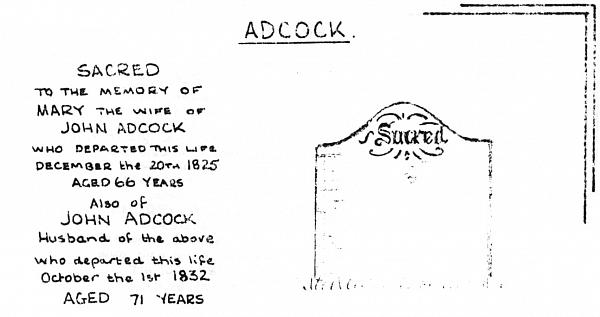 ADCOCK.
SACRED
TO THE MEMORY OF
MARY THE WIFE OF
JOHN ADCOCK
WHO DEPARTED THIS LIFE
DECEMBER the 20TH 1825
AGED 66 YEARS
Also of
JOHN ADCOCK
Husband of the above
who departed this life
October the 1st 1832
AGED 71 YEARS
Sacred